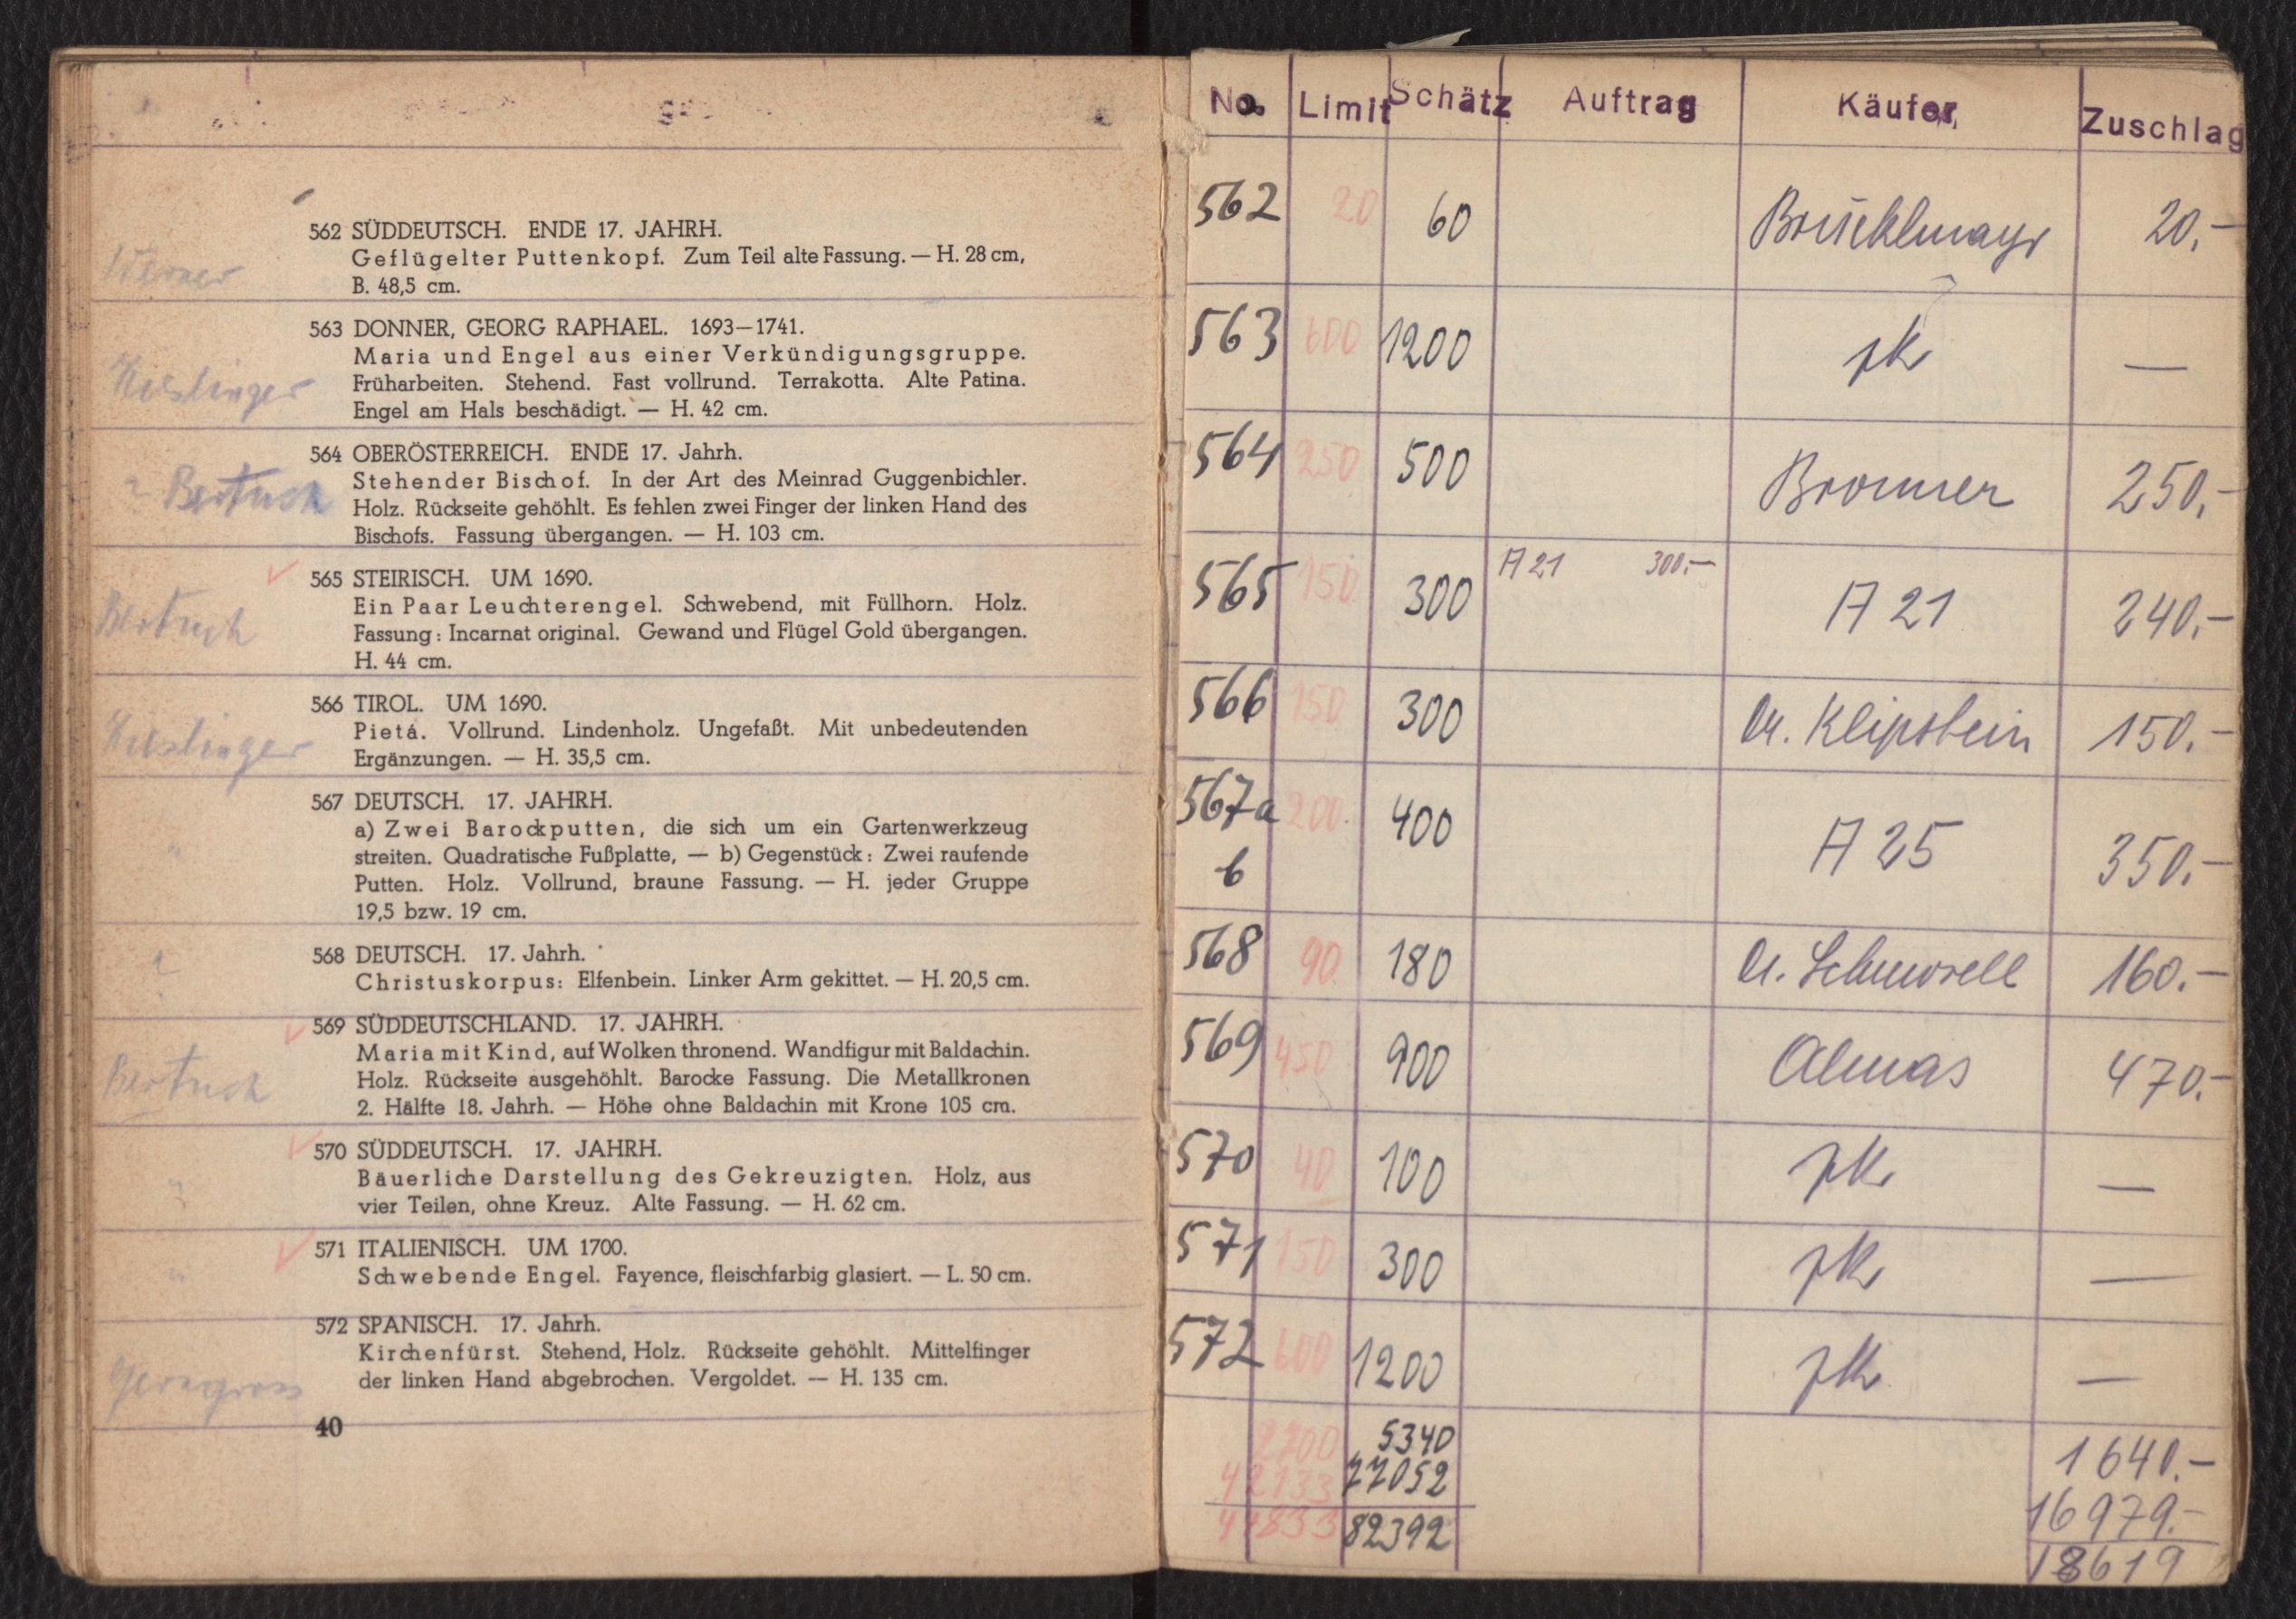 562 SÜDDEUTSCH. ENDE 17. JAHRH.
Geflügelter Puttenkopf. Zum Teil alte Fassung. — H. 28 cm,
B. 48,5 cm.
563 DONNER, GEORG RAPHAEL. 1693—1741.
Maria und Engel aus einer Verkündigungsgruppe.
Früharbeiten. Stehend. Fast vollrund. Terrakotta. Alte Patina.
Engel am Hals beschädigt. — H. 42 cm.
564 OBERÖSTERREICH. ENDE 17. Jahrh.
Bertuch
Stehender Bischof. In der Art des Meinrad Guggenbichler.
Holz. Rückseite gehöhlt. Es fehlen zwei Finger der linken Hand des
Bischofs. Fassung übergangen. — H. 103 cm.
565 STEIRISCH. UM 1690.
Bertuch
Ein Paar Leuchterengel. Schwebend, mit Füllhorn. Holz.
Fassung: Incarnat original. Gewand und Flügel Gold übergangen.
H. 44 cm.
566 TIROL. UM 1690.
Pietá. Vollrund. Lindenholz. Ungefaßt. Mit unbedeutenden
Ergänzungen. — H. 35,5 cm.
567 DEUTSCH. 17. JAHRH.
a) Zwei Barockputten, die sich um ein Gartenwerkzeug
streiten. Quadratische Fußplatte, — b) Gegenstück: Zwei raufende
Putten. Holz. Vollrund, braune Fassung. — H. jeder Gruppe
19,5 bzw. 19 cm.
568 DEUTSCH. 17. Jahrh.
Christuskorpus: Elfenbein. Linker Arm gekittet. — H. 20,5 cm.
569 SÜDDEUTSCHLAND. 17. JAHRH.
Bertuch
Maria mit Kind, auf Wolken thronend. Wandfigur mit Baldachin.
Holz. Rückseite ausgehöhlt. Barocke Fassung. Die Metallkronen
2. Hälfte 18. Jahrh. — Höhe ohne Baldachin mit Krone 105 cm.
570 SÜDDEUTSCH. 17. JAHRH.
Bäuerliche Darstellung des Gekreuzigten. Holz, aus
vier Teilen, ohne Kreuz. Alte Fassung. — H. 62 cm.
571 ITALIENISCH. UM 1700.
Schwebende Engel. Fayence, fleischfarbig glasiert. — L. 50 cm.
572 SPANISCH. 17. Jahrh.
Kirchenfürst. Stehend, Holz. Rückseite gehöhlt. Mittelfinger
der linken Hand abgebrochen. Vergoldet. — H. 135 cm.
40
No. Limit Schätz Auftrag Käufer Zuschlag
562 20 60 Brücklmayr 20.-
563 600 1200 zk —
564 250 500 Bronner 250.-
565 150 300 A 21 300.— A 21 240.-
566 150 300 Dr. Klipstein 150.-
567a 200 400 A 25 350.-
b
568 90 180 Dr. Schmorell 160.-
569 450 900 Almas 470.-
570 40 100 zk —
571 150 300 zk —
572 600 1200 zk —
2700 5340 1640.-
42133 77052 16979.-
44833 82392 18619